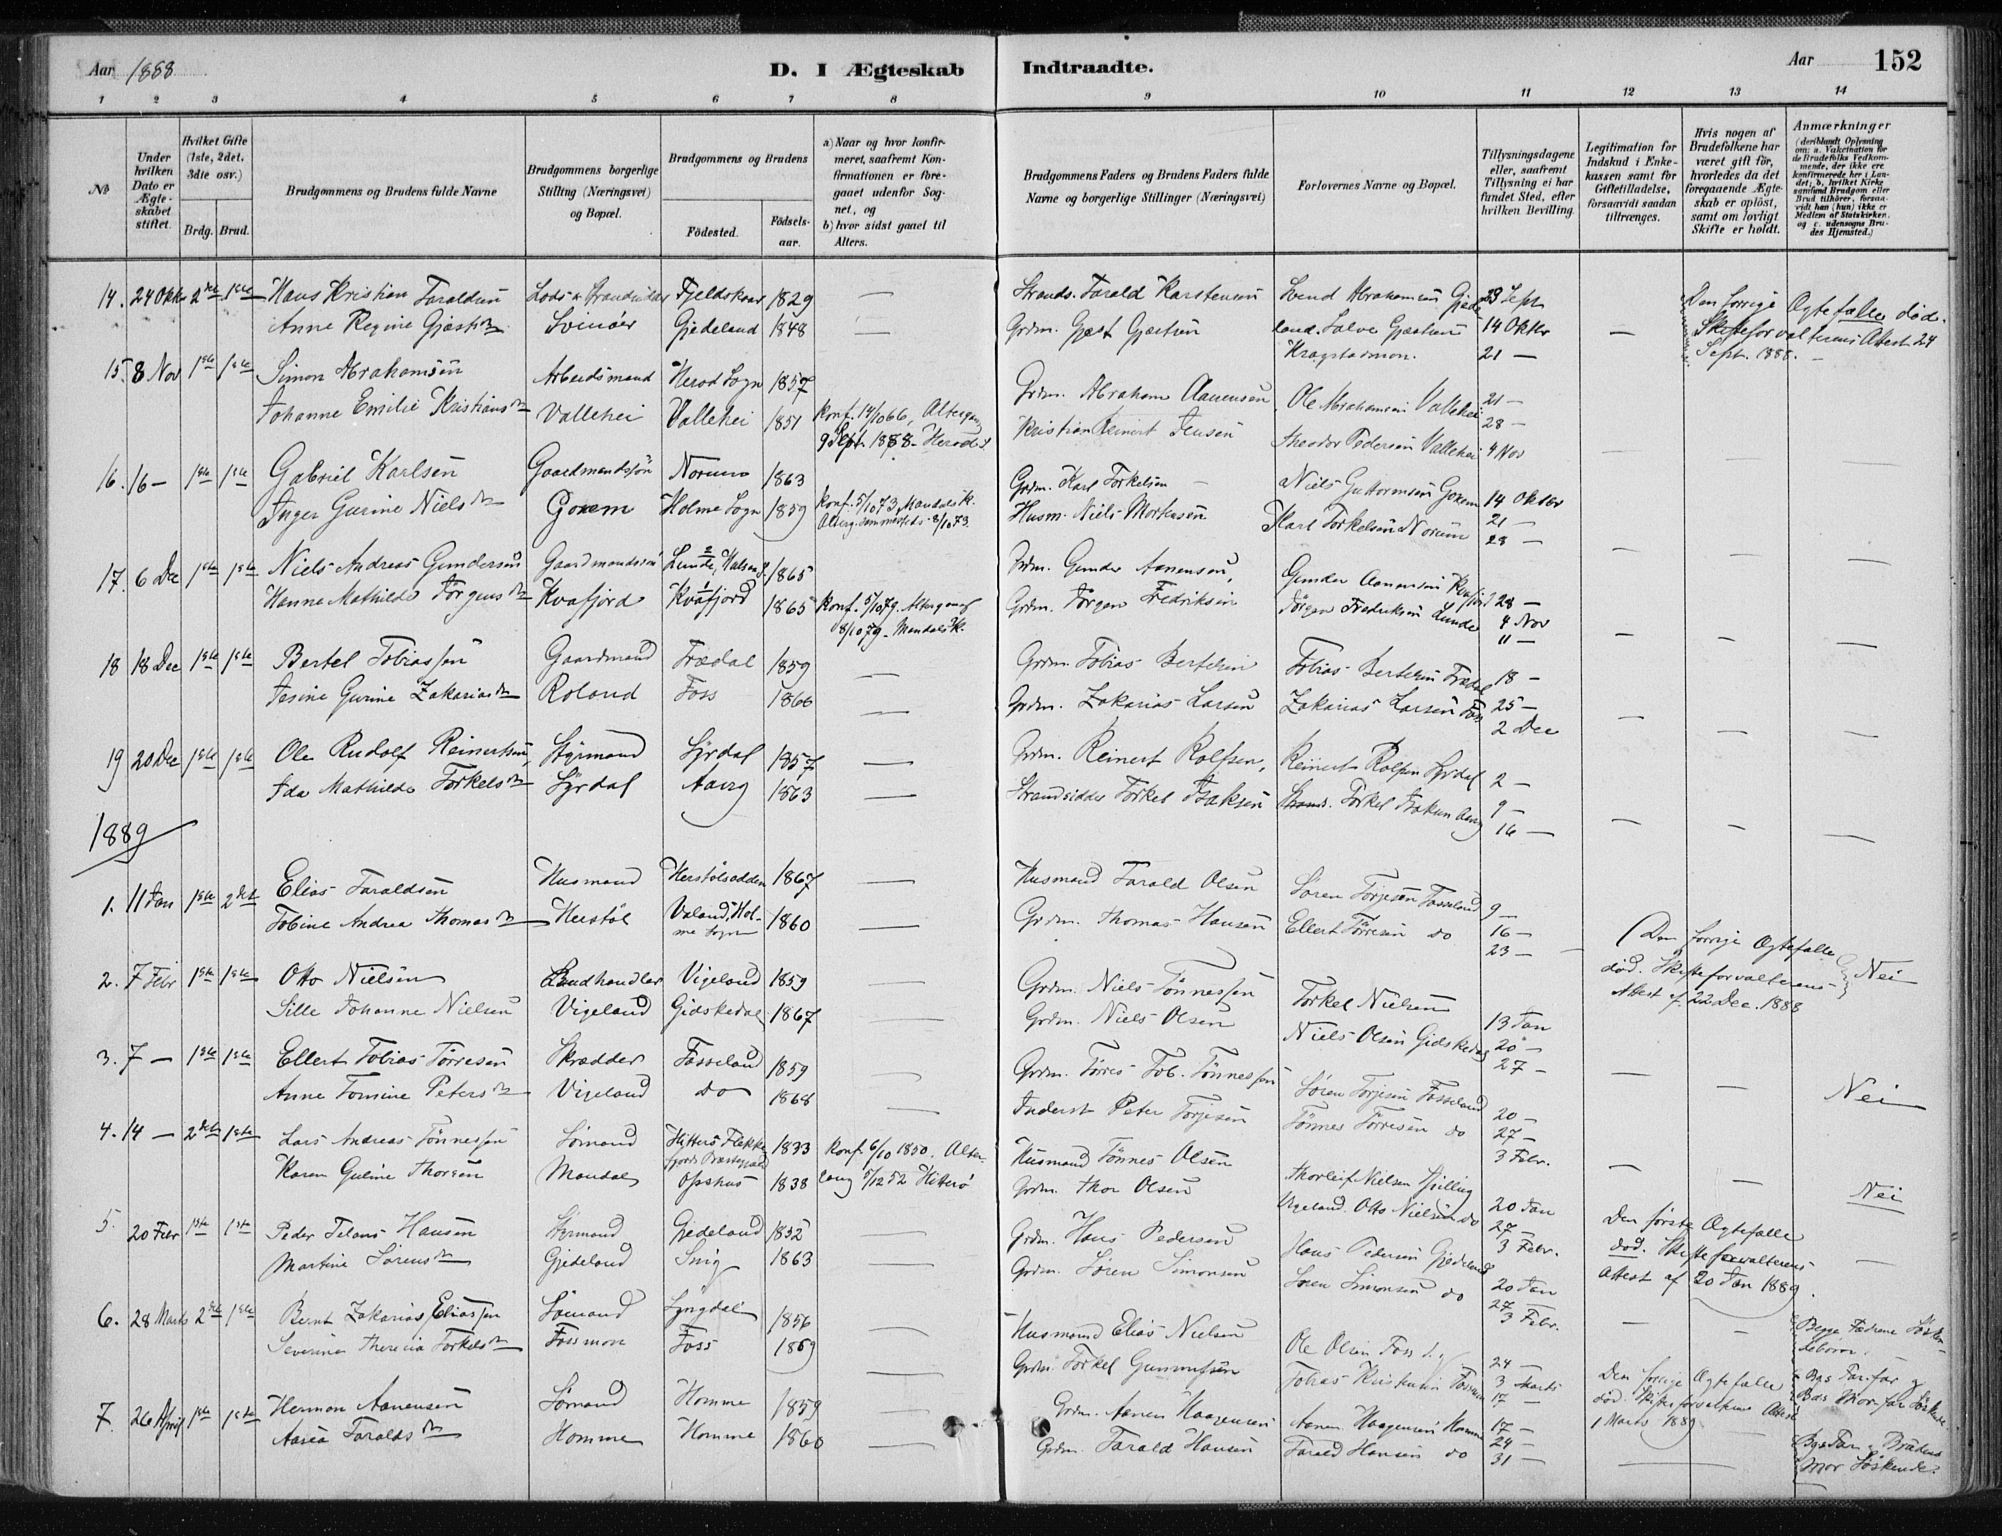 Aar 1888
D. I Ægteskab Indtraadte.
Aar
152
1 2 3 4 5 6 7 8 9 10 11 12 13 14
№
Under hvilken Dato er Ægteskabet stiftet.
Hvilket Gifte (1ste, 2det, 3die osv.)
Brdg. Brud.
Brudgommens og Brudens fulde Navne
Brudgommens borgerlige Stilling (Næringsvei) og Bopæl.
Brudgommens og Brudens
Fødested.
Fødselsaar.
a) Naar og hvor konfirmeret, saafremt Konfirmationen er foregaaet udenfor Sognet, og
b) hvor sidst gaaet til Alters.
Brudgommens Faders og Brudens Faders fulde Navne og borgerlige Stillinger (Næringsvei)
Forlovernes Navne og Bopæl.
Tillysningsdagene eller, saafremt Tillysning ei har fundet Sted, efter hvilken Bevilling.
Legitimation for Indskud i Enkekassen samt for Giftetilladelse, forsaavidt saadan tiltrænges.
Hvis nogen af Brudefolkene har været gift før, hvorledes da det foregaaende Ægteskab er opløst, samt om lovligt Skifte er holdt.
Anmærkninger
(deriblandt Oplysning om: a. Vakcination for de Brudefolks Vedkommende, der ikke ere konfirmerede her i Landet; b. hvilket Kirkesamfund Brudgom eller Brud tilhører, forsaavidt han (hun) ikke er Medlem af Statskirken. og c. udensogns Brudes Hjemsted.)
14. 24 Oktbr 2det 1ste Hans Kristian Taraldsen Lods & Strandsidder Fjeldskaar 1829 — Strands. Tarald Karstensen Svend Abrahamsen Gjede 23 Sept Den forrige Ægtefælle død.
Anne Regine Gjestsdtr Svinøer Gjedeland 1848 — Grdm. Gjest Gjestsen land. Salve Gjestsen 14 Oktbr — Skifteforvalterens Attest 24
21 — Sept. 1888. —
15. 8 Nov 1ste 1ste Simon Abrahamsen Arbeidsmand Herod Sogn 1857 Grdm. Abraham Aanensen Ole Abrahamsen Vallehei 21 —
Johanne Emilie Kristiansdtr Vallehei Vallehei 1851 Konf. 14/10 66, Altergang Kristian Reinert Jensen Theodor Pedersen Vallehei 28 —
9 Sept. 1888. Herod S. 4 Nov
16. 16 — 1ste 1ste Gabriel Karlsen Gaardmandssøn Norum 1863 Grdm. Karl Torkelsen Niels Guttormsen 14 Oktbr
Inger Gurine Nielsdtr Holme Sogn 1859 Konf. 5/10 73, Mandals K. Husm. Niels Mortensen Karl Torkelsen Norum 21 —
8/10 73. 28 —
17. 6 Dec 1ste 1ste Niels Andreas Gundersen Gaardmandssøn Lunde, Halsaa S. 1865 Grdm. Gunder Aanensen, Gunder Aanensen 28 —
Hanna Mathilde Jørgensdtr Kvafjord Kvafjord 1865 Konf. 5/10 79. Altergang Grdm. Jørgen Fredriksen Jørgen Fredriksen Lunde 4 Nov
8/10 79. Mandals K. 11 —
18 18 Dec 1ste 1ste Bertel Tobiassen Gaardmand Trædal 1859 — Grdm. Tobias Bertelsen Tobias Bertelsen Trædal 18 —
Jesine Gurine Zakariasdtr Roland Foss 1866 — Grdm. Zakarias Larsen Zakarias Larsen Foss 25 —
2 Dec
19 20 Dec 1ste 1ste Ole Rudolf Reinertsen, Styrmand Syrdal 1857 — Grdm. Reinert Rolfsen, Reinert Rolfsen Syrdal 2 —
Ida Mathilde Torkelsdtr Syrdal Aavog 1863 — Strandsidder Torkel Isaksen Strands. Torkel Isaksen 9 —
16 —
1889
1. 11 Jan 1ste 2det Elias Taraldsen Husmand Herstølsodden 1867 — Husmand Tarald Olsen Søren Torjesen Fosseland 9 —
Tobine Andrea Thomasdtr Herstøl Valand, Holme Sogn 1860 — Grdm. Thomas Hansen Ellert Tørresen do 16 —
23 — Den forrige Ægtefælle
død. Skifteforvalterens Nei
Attest af 22 Dec. 1888
2. 7 Febr 1ste 1ste Otto Nielsen Landhandler Vigeland 1859 — Grdm. Niels Tønnessen Torkel Nielsen 13 Jan
Sille Johanne Nielsen Vigeland Gidskedal 1867 — Grdm. Niels Olsen Niels Olsen Gidskedal 20 —
27 — Nei
3. 7 — 1ste 1ste Ellert Tobias Tørresen Skrædder Fosseland 1859 — Grdm. Tørres Tob. Tønnessen Søren Torjesen Fosseland 20 —
Anne Tomine Petersdtr Vigeland do 1868 — Inderst Peter Torjesen Tønnes Tørresen do 27 —
3 Febr. Nei
4. 14 — 2det 1ste Lars Andreas Tønnessen Sømand Hitterø 1833 Konf. 6/10 1850. Alter- Husmand Tønnes Olsen Thorleif Nielsen 20 Jan Den første Ægtefælle
Karen Guline Thorsen Mandal Opshus 1838 5/12 52 Hitterø Grdm. Thor Olsen Vigeland. Otto Nielsen do 27 — død. Skifteforvalterens
3 Febr. Attest af 20 Jan 1889.
5. 20 Febr 1ste 1ste Peder Hansen Styrmand Gjedeland Grdm. Hans Pedersen Hans Pedersen Gjedeland 20 Jan
Martine Sørensdtr Gjedeland Snig 1863 — Grdm. Søren Simonsen Søren Simonsen do 27
3 Febr. Begge Fædrene
6. 28 Marts 2det 1ste Bernt Zakarias Eliassen Sømand Lyngdal 1856 — Husmand Elias Nielsen Ole Olsen Foss 24 — Den forrige Ægtefælle
Severine Theresia Torkelsdtr Fossmon Foss 1869 — Grdm. Torkel Gunnufsen Tobias 3 Marts død. Skifteforvalterens Attest
17 — 1 Marts 1889
7. 26 April 1ste 1ste Herman Aanensen Sømand Homme 1859 — Grdm. Aanen Haagensen Aanen Haagensen Homme 17 —
Aasea Taraldsdtr Homme Homme 1860 — Grdm. Tarald Hansen Tarald Hansen do 24 —
31 — Bgs Far & Brudens
Mor Søskende.